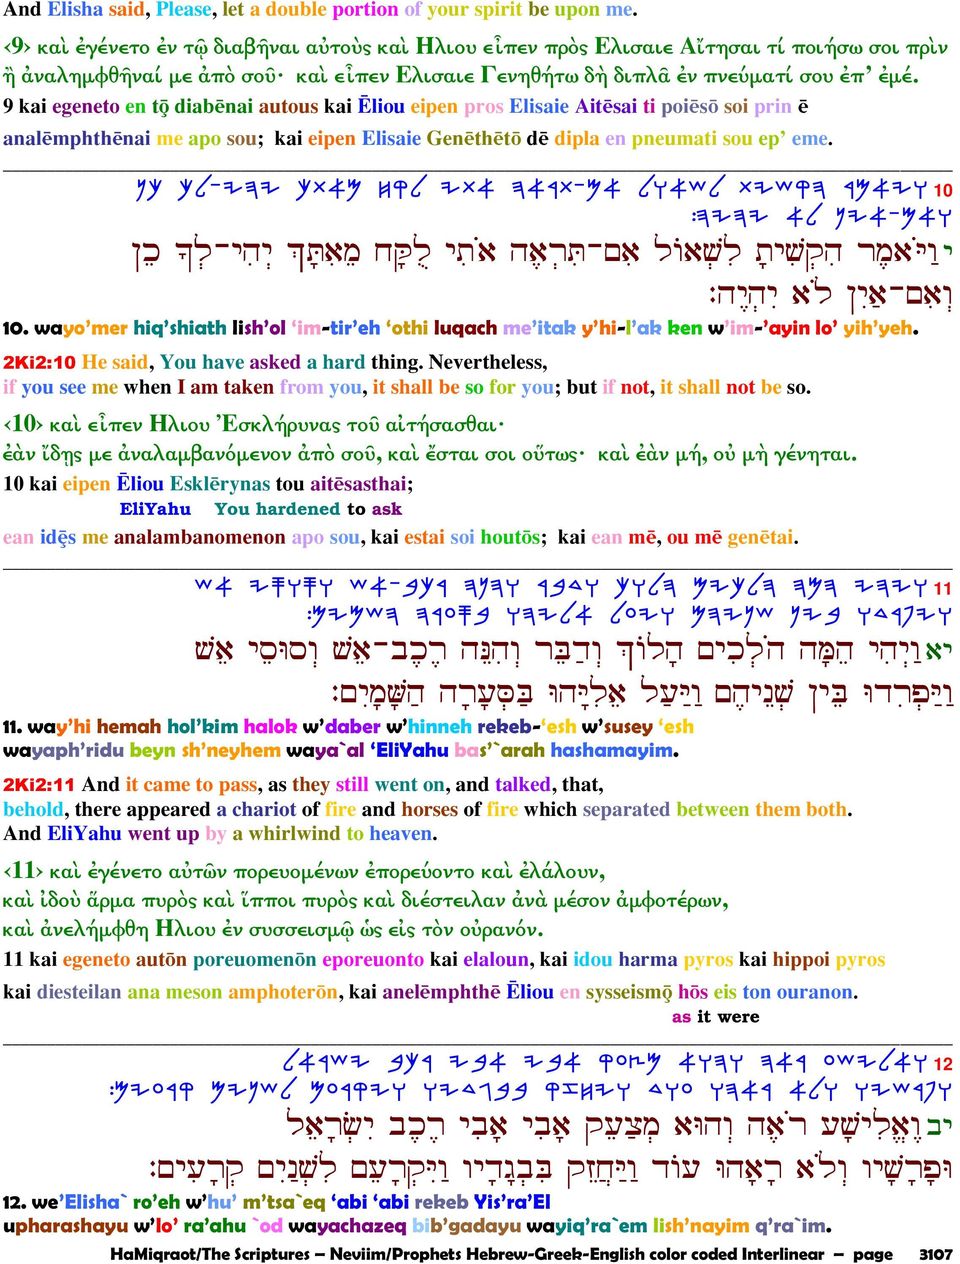 And Elisha said, Please, let a double portion of your spirit be upon me.
‹9› καὶ ἐγένετο ἐν τῷ διαβῆναι αὐτοὺς καὶ Ηλιου εἶπεν πρὸς Ελισαιε Αἴτησαι τί ποιήσω σοι πρὶν
ἢ ἀναλημφθῆναί με ἀπὸ σοῦ· καὶ εἶπεν Ελισαιε Γενηθήτω δὴ διπλᾶ ἐν πνεύματί σου ἐπ’ ἐμέ.
9 kai egeneto en tǭ diabēnai autous kai Ēliou eipen pros Elisaie Aitēsai ti poiēsō soi prin ē
analēmphthēnai me apo sou; kai eipen Elisaie Genēthētō dē dipla en pneumati sou ep’ eme.
10 𐤅𐤉𐤀𐤌𐤓 𐤄𐤒𐤔𐤉𐤕 𐤋𐤔𐤀𐤅𐤋 𐤀𐤌-𐤕𐤓𐤀𐤄 𐤀𐤕𐤉 𐤋𐤒𐤇 𐤌𐤀𐤕𐤊 𐤉𐤄𐤉-𐤋𐤊 𐤊𐤍
𐤅𐤀𐤌-𐤀𐤉𐤍 𐤋𐤀 𐤉𐤄𐤉𐤄:
י וַיֹּאמֶר הִקְשִׁיתָ לִשְׁאוֹל אִם־תִּרְאֶה אֹתִי לֻקָּח מֵאִתָּךְ יְהִי־לְךָ כֵן
וְאִם־אַיִן לֹא יִהְיֶה׃
10. wayo’mer hiq’shiath lish’ol ‘im-tir’eh ‘othi luqach me’itak y’hi-l’ak ken w’im-’ayin lo’ yih’yeh.
2Ki2:10 He said, You have asked a hard thing. Nevertheless,
if you see me when I am taken from you, it shall be so for you; but if not, it shall not be so.
‹10› καὶ εἶπεν Ηλιου Ἐσκλήρυνας τοῦ αἰτήσασθαι·
ἐὰν ἴδῃς με ἀναλαμβανόμενον ἀπὸ σοῦ, καὶ ἔσται σοι οὕτως· καὶ ἐὰν μή, οὐ μὴ γένηται.
10 kai eipen Ēliou Esklērynas tou aitēsasthai;
EliYahu You hardened to ask
ean idę̄s me analambanomenon apo sou, kai estai soi houtōs; kai ean mē, ou mē genētai.
11 𐤅𐤉𐤄𐤉 𐤄𐤌𐤄 𐤄𐤋𐤊𐤉𐤌 𐤄𐤋𐤅𐤊 𐤅𐤃𐤁𐤓 𐤅𐤄𐤍𐤄 𐤓𐤊𐤁-𐤀𐤔 𐤅𐤎𐤅𐤎𐤉 𐤀𐤔
𐤅𐤉𐤐𐤓𐤃𐤅 𐤁𐤉𐤍 𐤔𐤍𐤉𐤄𐤌 𐤅𐤉𐤏𐤋 𐤀𐤋𐤉𐤄𐤅 𐤁𐤎𐤏𐤓𐤄 𐤄𐤔𐤌𐤉𐤌:
יא וַיְהִי הֵמָּה הֹלְכִים הָלוֹךְ וְדַבֵּר וְהִנֵּה רֶכֶב־אֵשׁ וְסוּסֵי אֵשׁ
וַיַּפְרִדוּ בֵּין שְׁנֵיהֶם וַיַּעַל אֵלִיָּהוּ בַּסְּעָרָה הַשָּׁמָיִם׃
11. way’hi hemah hol’kim halok w’daber w’hinneh rekeb-‘esh w’susey ‘esh
wayaph’ridu beyn sh’neyhem waya`al ‘EliYahu bas’`arah hashamayim.
2Ki2:11 And it came to pass, as they still went on, and talked, that,
behold, there appeared a chariot of fire and horses of fire which separated between them both.
And EliYahu went up by a whirlwind to heaven.
‹11› καὶ ἐγένετο αὐτῶν πορευομένων ἐπορεύοντο καὶ ἐλάλουν,
καὶ ἰδοὺ ἅρμα πυρὸς καὶ ἵπποι πυρὸς καὶ διέστειλαν ἀνὰ μέσον ἀμφοτέρων,
καὶ ἀνελήμφθη Ηλιου ἐν συσσεισμῷ ὡς εἰς τὸν οὐρανόν.
11 kai egeneto autōn poreuomenōn eporeuonto kai elaloun, kai idou harma pyros kai hippoi pyros
kai diesteilan ana meson amphoterōn, kai anelēmphthē Ēliou en sysseismǭ hōs eis ton ouranon.
as it were
12 𐤅𐤀𐤋𐤉𐤔𐤏 𐤓𐤀𐤄 𐤅𐤄𐤅𐤀 𐤌𐤑𐤏𐤒 𐤀𐤁𐤉 𐤀𐤁𐤉 𐤓𐤊𐤁 𐤉𐤔𐤓𐤀𐤋
𐤅𐤐𐤓𐤔𐤉𐤅 𐤅𐤋𐤀 𐤓𐤀𐤄𐤅 𐤏𐤅𐤃 𐤅𐤉𐤇𐤆𐤒 𐤁𐤁𐤂𐤃𐤉𐤅 𐤅𐤉𐤒𐤓𐤏𐤌 𐤋𐤔𐤍𐤉𐤌 𐤒𐤓𐤏𐤉𐤌:
יב וֶאֱלִישָׁע רֹאֶה וְהוּא מְצַעֵק אָבִי אָבִי רֶכֶב יִשְׂרָאֵל
וּפָרָשָׁיו וְלֹא רָאָהוּ עוֹד וַיַּחֲזֵק בִּבְגָדָיו וַיִּקְרָעֵם לִשְׁנַיִם קְרָעִים׃
12. we’Elisha` ro’eh w’hu’ m’tsa`eq ‘abi ‘abi rekeb Yis’ra’El
upharashayu w’lo’ ra’ahu `od wayachazeq bib’gadayu wayiq’ra`em lish’nayim q’ra`im.
HaMiqraot/The Scriptures – Neviim/Prophets Hebrew-Greek-English color coded Interlinear – page 3107